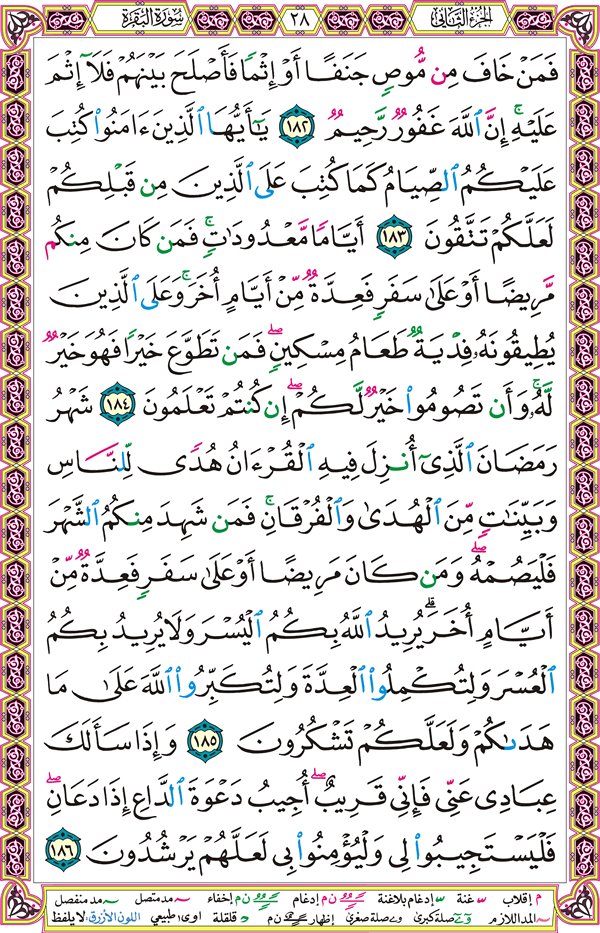 الجزء الثاني ٢٨ سورة البقرة
فَمَنْ خَافَ مِن مُّوصٍ جَنَفًا أَوْ إِثْمًا فَأَصْلَحَ بَيْنَهُمْ فَلَآ إِثْمَ
عَلَيْهِ ۚ إِنَّ ٱللَّهَ غَفُورٌ رَّحِيمٌ ١٨٢ يَـٰٓأَيُّهَا ٱلَّذِينَ ءَامَنُوا۟ كُتِبَ
عَلَيْكُمُ ٱلصِّيَامُ كَمَا كُتِبَ عَلَى ٱلَّذِينَ مِن قَبْلِكُمْ
لَعَلَّكُمْ تَتَّقُونَ ١٨٣ أَيَّامًا مَّعْدُودَٰتٍ ۚ فَمَن كَانَ مِنكُم
مَّرِيضًا أَوْ عَلَىٰ سَفَرٍ فَعِدَّةٌ مِّنْ أَيَّامٍ أُخَرَ ۚ وَعَلَى ٱلَّذِينَ
يُطِيقُونَهُۥ فِدْيَةٌ طَعَامُ مِسْكِينٍ ۖ فَمَن تَطَوَّعَ خَيْرًا فَهُوَ خَيْرٌ
لَّهُۥ ۚ وَأَن تَصُومُوا۟ خَيْرٌ لَّكُمْ ۖ إِن كُنتُمْ تَعْلَمُونَ ١٨٤ شَهْرُ
رَمَضَانَ ٱلَّذِىٓ أُنزِلَ فِيهِ ٱلْقُرْءَانُ هُدًى لِّلنَّاسِ
وَبَيِّنَـٰتٍ مِّنَ ٱلْهُدَىٰ وَٱلْفُرْقَانِ ۚ فَمَن شَهِدَ مِنكُمُ ٱلشَّهْرَ
فَلْيَصُمْهُ ۖ وَمَن كَانَ مَرِيضًا أَوْ عَلَىٰ سَفَرٍ فَعِدَّةٌ مِّنْ
أَيَّامٍ أُخَرَ ۗ يُرِيدُ ٱللَّهُ بِكُمُ ٱلْيُسْرَ وَلَا يُرِيدُ بِكُمُ
ٱلْعُسْرَ وَلِتُكْمِلُوا۟ ٱلْعِدَّةَ وَلِتُكَبِّرُوا۟ ٱللَّهَ عَلَىٰ مَا
هَدَىٰكُمْ وَلَعَلَّكُمْ تَشْكُرُونَ ١٨٥ وَإِذَا سَأَلَكَ
عِبَادِى عَنِّى فَإِنِّى قَرِيبٌ ۖ أُجِيبُ دَعْوَةَ ٱلدَّاعِ إِذَا دَعَانِ ۖ
فَلْيَسْتَجِيبُوا۟ لِى وَلْيُؤْمِنُوا۟ بِى لَعَلَّهُمْ يَرْشُدُونَ ١٨٦
م إقلاب غنة إدغام بلاغنة ن م إدغام ن م إخفاء مد متصل مد منفصل
المد اللازم صلة كبرى صلة صغرى إظهار ن م قلقلة اوى: طبيعي اللون الأزرق: لا يلفظ